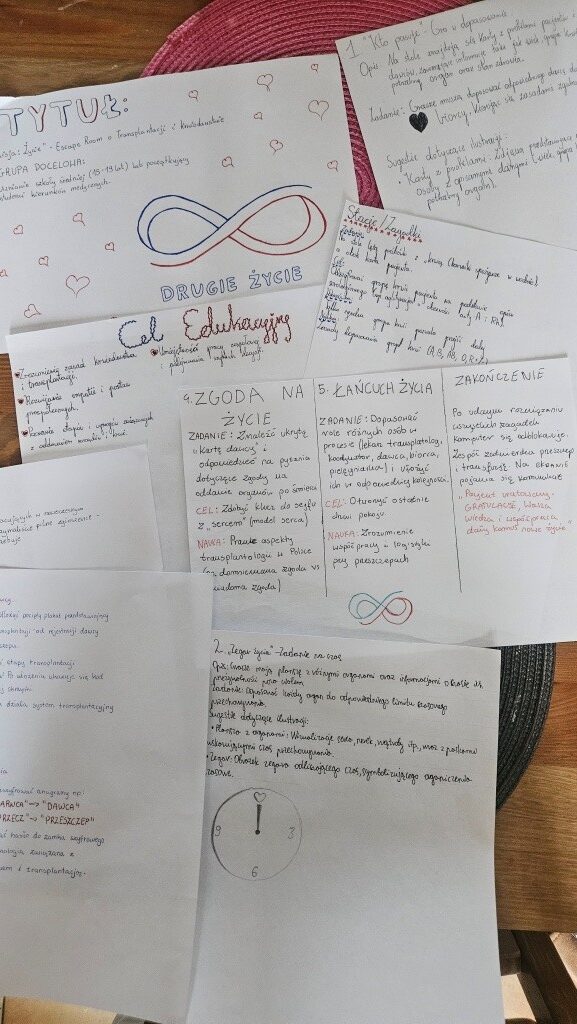 TYTUŁ:
Życie" - Escape Room o Transplantacji i Krwiodawstwie
GRUPA DOCELOWA:
szkoły średniej (15-19 lat) lub początkujący
kierunków medycznych.
DRUGIE ŻYCIE
1. "Kto pasuje" - Gra w dopasowanie
Opis: Na stole znajdują się karty z profilami pacjentów i
dawców, zawierające informacje takie jak wiek, grupa krwi,
potrzebny organ oraz stan zdrowia.
Zadanie: Gracze muszą dopasować odpowiedniego dawcę do
biorcy. Kierując się zasadami zgodności
Sugestie dotyczące ilustracji:
• Karty z profilami: Zdjęcia przedstawiające
osoby z opisanymi danymi (wiek, grupa krwi,
potrzebny organ).
Stacje/Zagadki
Na stole leżą probówki z „krwią (barwniki spożywcze w wodzie)
a obok karta pacjenta.
Cel:
grupę krwi pacjenta na podstawie opisu
Tylko zgodna grupa krwi pozwala przejść dalej
Zasady dopasowania grupy krwi (A, B, AB, 0, Rh+/-)
Cel Edukacyjny
Zrozumienie zasad krwiodawstwa
i transplantacji.
Rozwijanie empatii i postaw
prospołecznych.
Poznanie etapów i wyzwań związanych
z oddawaniem narządów i krwi.
Umiejętności pracy zespołowej
i podejmowania szybkich decyzji.
4. ZGODA NA
ŻYCIE
ZADANIE: Znaleźć ukrytą
„kartę dawcy" i
odpowiedzieć na pytania
dotyczące zgody na
oddanie organów po śmierci
CEL: Zdobyć klucz do sejfu
z „sercem" (model serca)
NAUKA: Prawne aspekty
transplantologii w Polsce
domniemana zgoda vs
świadoma zgoda)
5. ŁAŃCUCH ŻYCIA
ZADANIE: Dopasować
role różnych osób w
procesie (lekarz transplantolog,
koordynator, dawca, biorca,
pielęgniarka) i ułożyć
ich w odpowiedniej kolejności.
CEL: Otworzyć ostatnie
drzwi pokoju
NAUKA: Zrozumienie
współpracy i logistyki
przy przeszczepach
ZAKOŃCZENIE
Po udanym rozwiązaniu
wszystkich zagadek
komputer się odblokowuje.
Zespół zatwierdza przeszczep
i transfuzję. Na ekranie
pojawia się komunikat
„Pacjent uratowany.
GRATULACJE, Wasza
wiedza i współpraca
dały komuś nowe życie"
pracujących w
pilne zgłoszenie:
ułożyć pocięty plakat przedstawiający
transplantacji od rejestracji dawcy
etapy transplantacji
Po ułożeniu ukazuje się kod
skrzyni.
działa system transplantacyjny
rozszyfrować anagramy np:
"DAWCA"
"PRZESZCZEP"
hasło do zamka szyfrowego
związana z
i transplantacją.
2. „Zegar życia" - Zadanie na czas
Opis: Gracze mają planszę z różnymi organami oraz informacjami o czasie ich
przydatności poza ciałem.
Zadanie: Dopasować każdy organ do odpowiedniego limitu czasowego
przechowywania.
Sugestie dotyczące ilustracji:
• Plansza z organami: Wizualizacje serca, nerek, wątroby itp., wraz z paskami
wskazującymi czas przechowywania.
• Zegar: Obrazek zegara odliczającego czas, symbolizującego ograniczenia
czasowe.
9
3
6